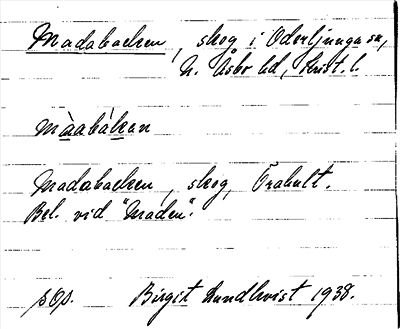 Madabacken, skog i Oderljunga sn,
N. Åsbo hd, Krist. l.
màabákan
Madabacken, skog, Trahult.
Bel. vid "Maden".
sOp. Birgit Lundkvist 1938.